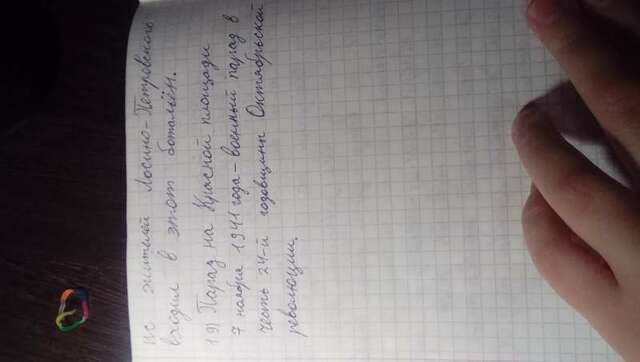 ис жителей Лосино-Петровского
входил в этотботальён.
19) Парад на Красной площади
7 ноября 1941 года - военный парад в
честь 24-й годовщины Октябрьской
революции.